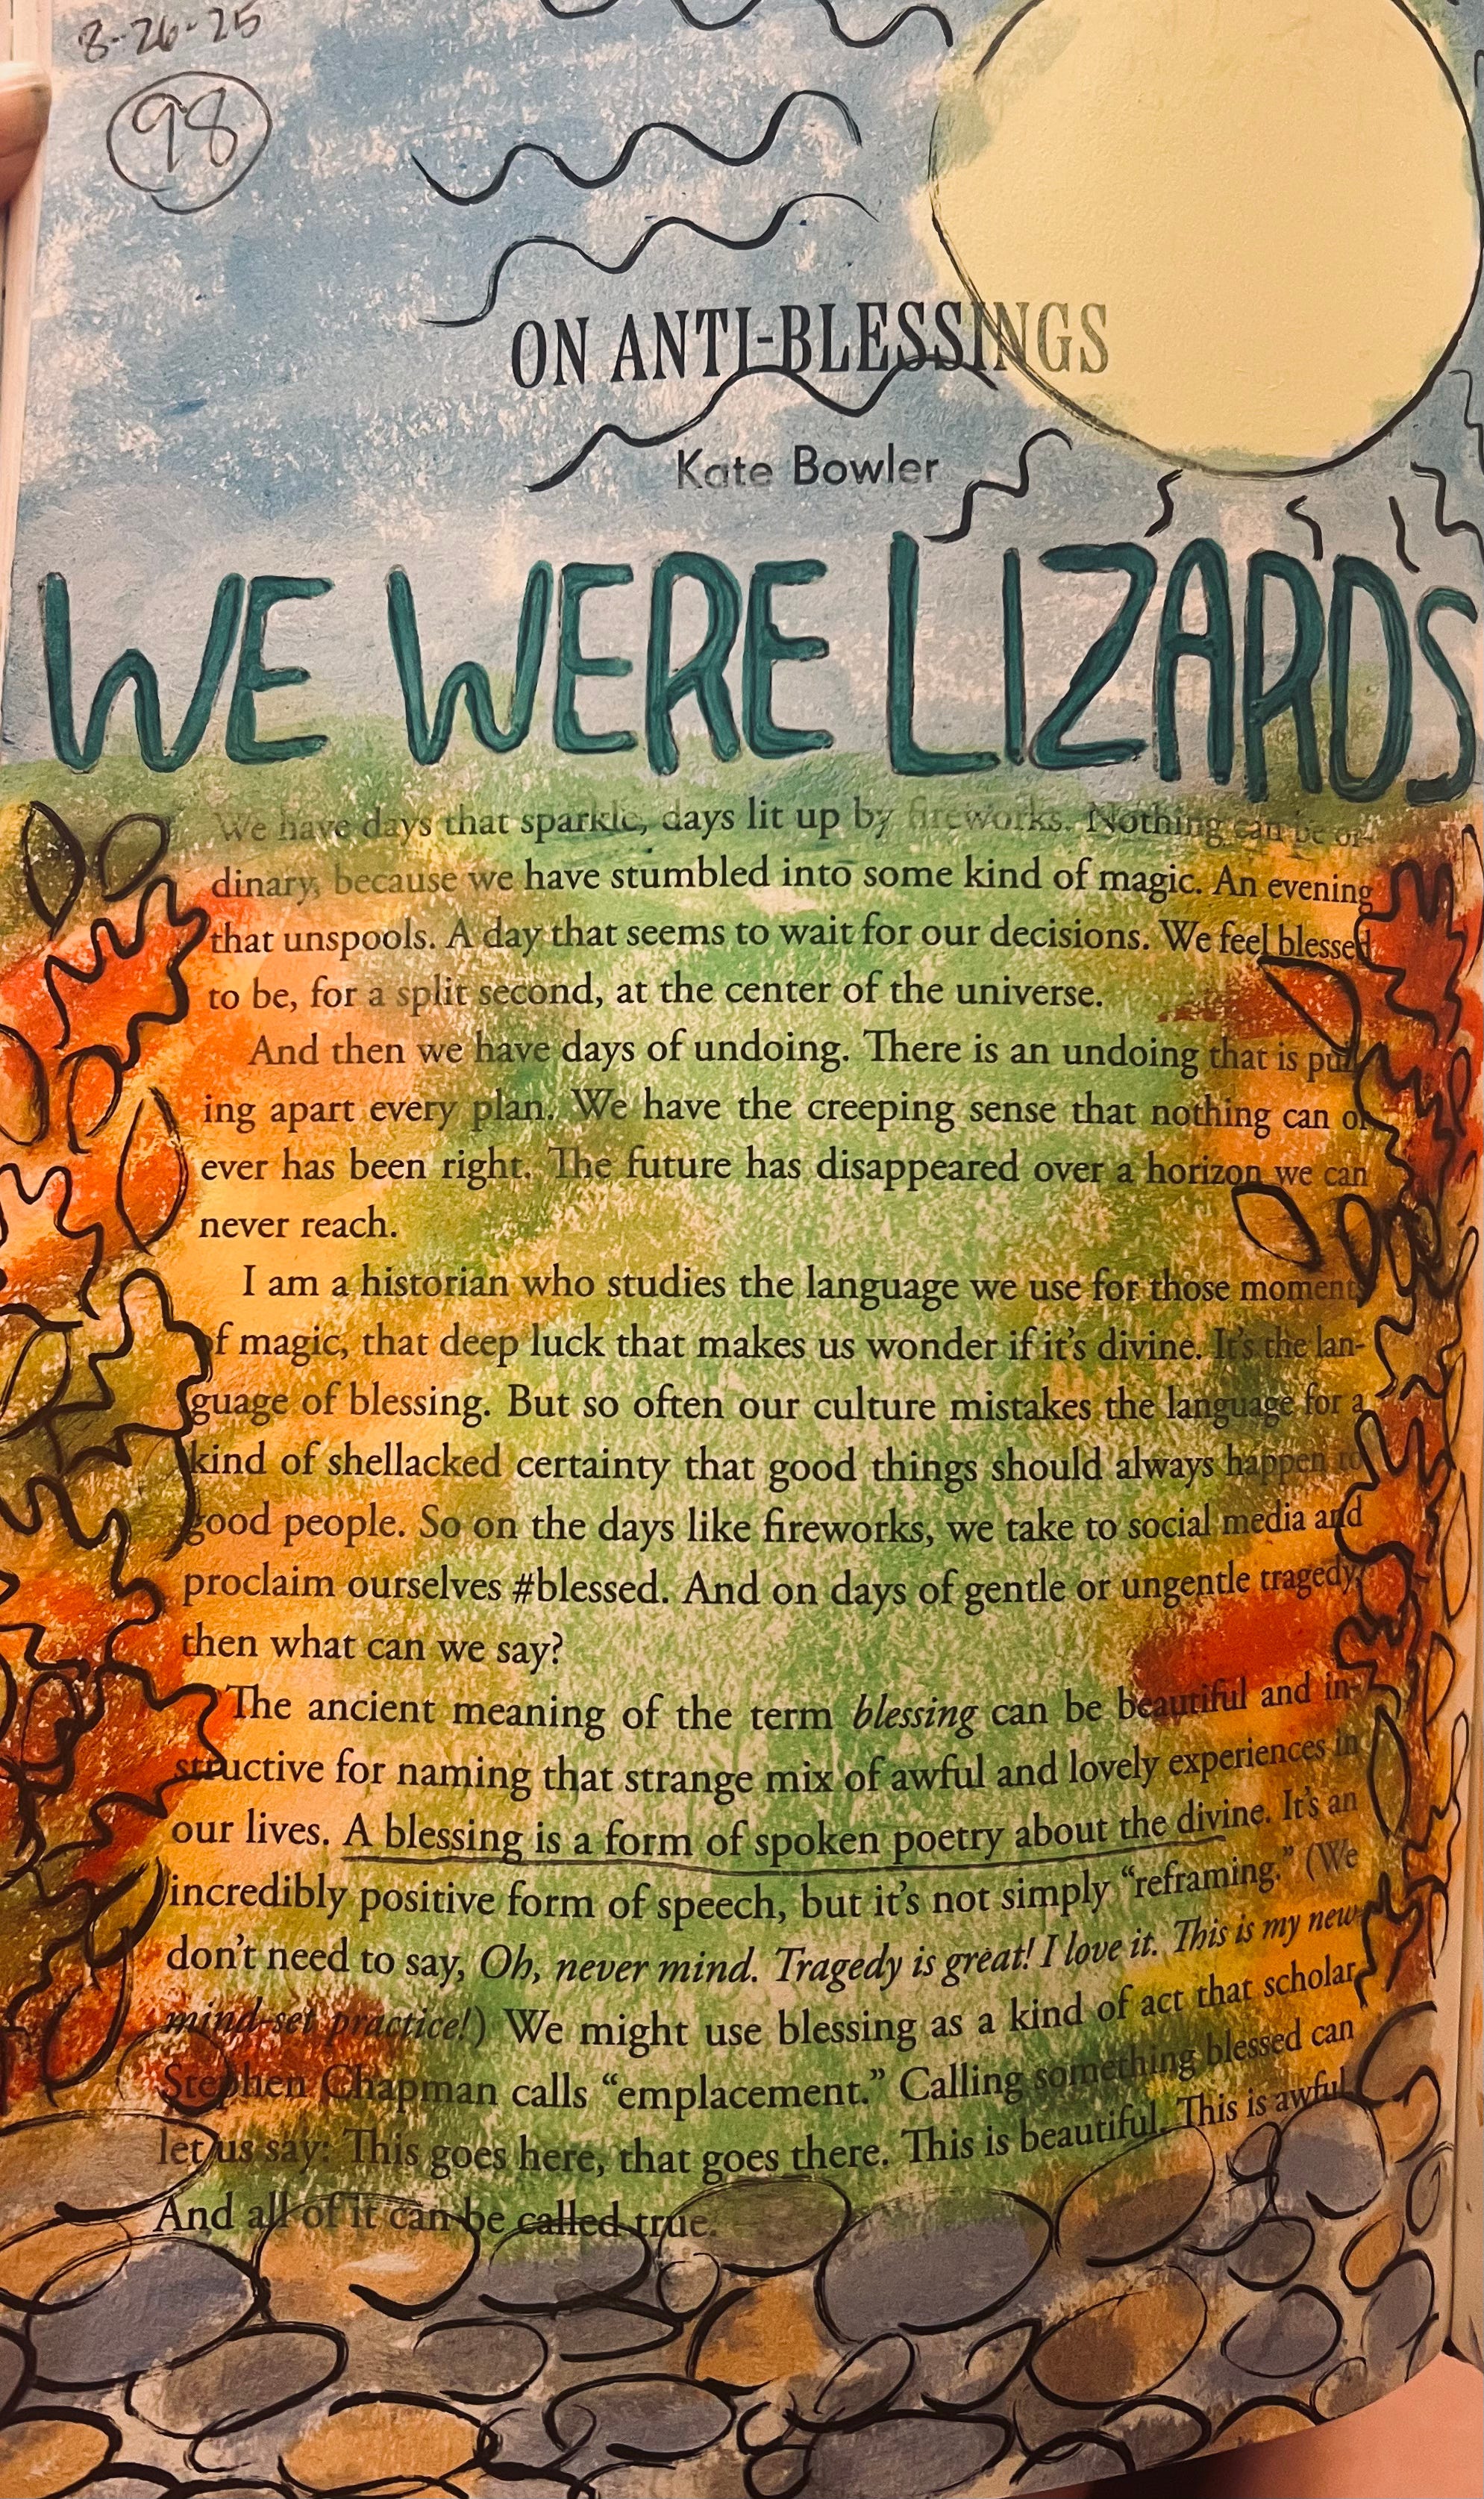 8-26-25
98
ON ANTI-BLESSINGS
Kate Bowler
WE WERE LIZARDS
We have days that sparkle, days lit up by fireworks. Nothing can be or-
dinary, because we have stumbled into some kind of magic. An evening
that unspools. A day that seems to wait for our decisions. We feel blessed
to be, for a split second, at the center of the universe.
And then we have days of undoing. There is an undoing that is pull-
ing apart every plan. We have the creeping sense that nothing can or
ever has been right. The future has disappeared over a horizon we can
never reach.
I am a historian who studies the language we use for those moments
of magic, that deep luck that makes us wonder if it’s divine. It’s the lan-
guage of blessing. But so often our culture mistakes the language for a
kind of shellacked certainty that good things should always happen to
good people. So on the days like fireworks, we take to social media and
proclaim ourselves #blessed. And on days of gentle or ungentle tragedy,
then what can we say?
The ancient meaning of the term blessing can be beautiful and in-
structive for naming that strange mix of awful and lovely experiences in
our lives. A blessing is a form of spoken poetry about the divine. It’s an
incredibly positive form of speech, but it’s not simply “reframing.” (We
don’t need to say, Oh, never mind. Tragedy is great! I love it. This is my new
mind-set practice!) We might use blessing as a kind of act that scholar
Stephen Chapman calls “emplacement.” Calling something blessed can
let us say: This goes here, that goes there. This is beautiful. This is awful.
And all of it can be called true.